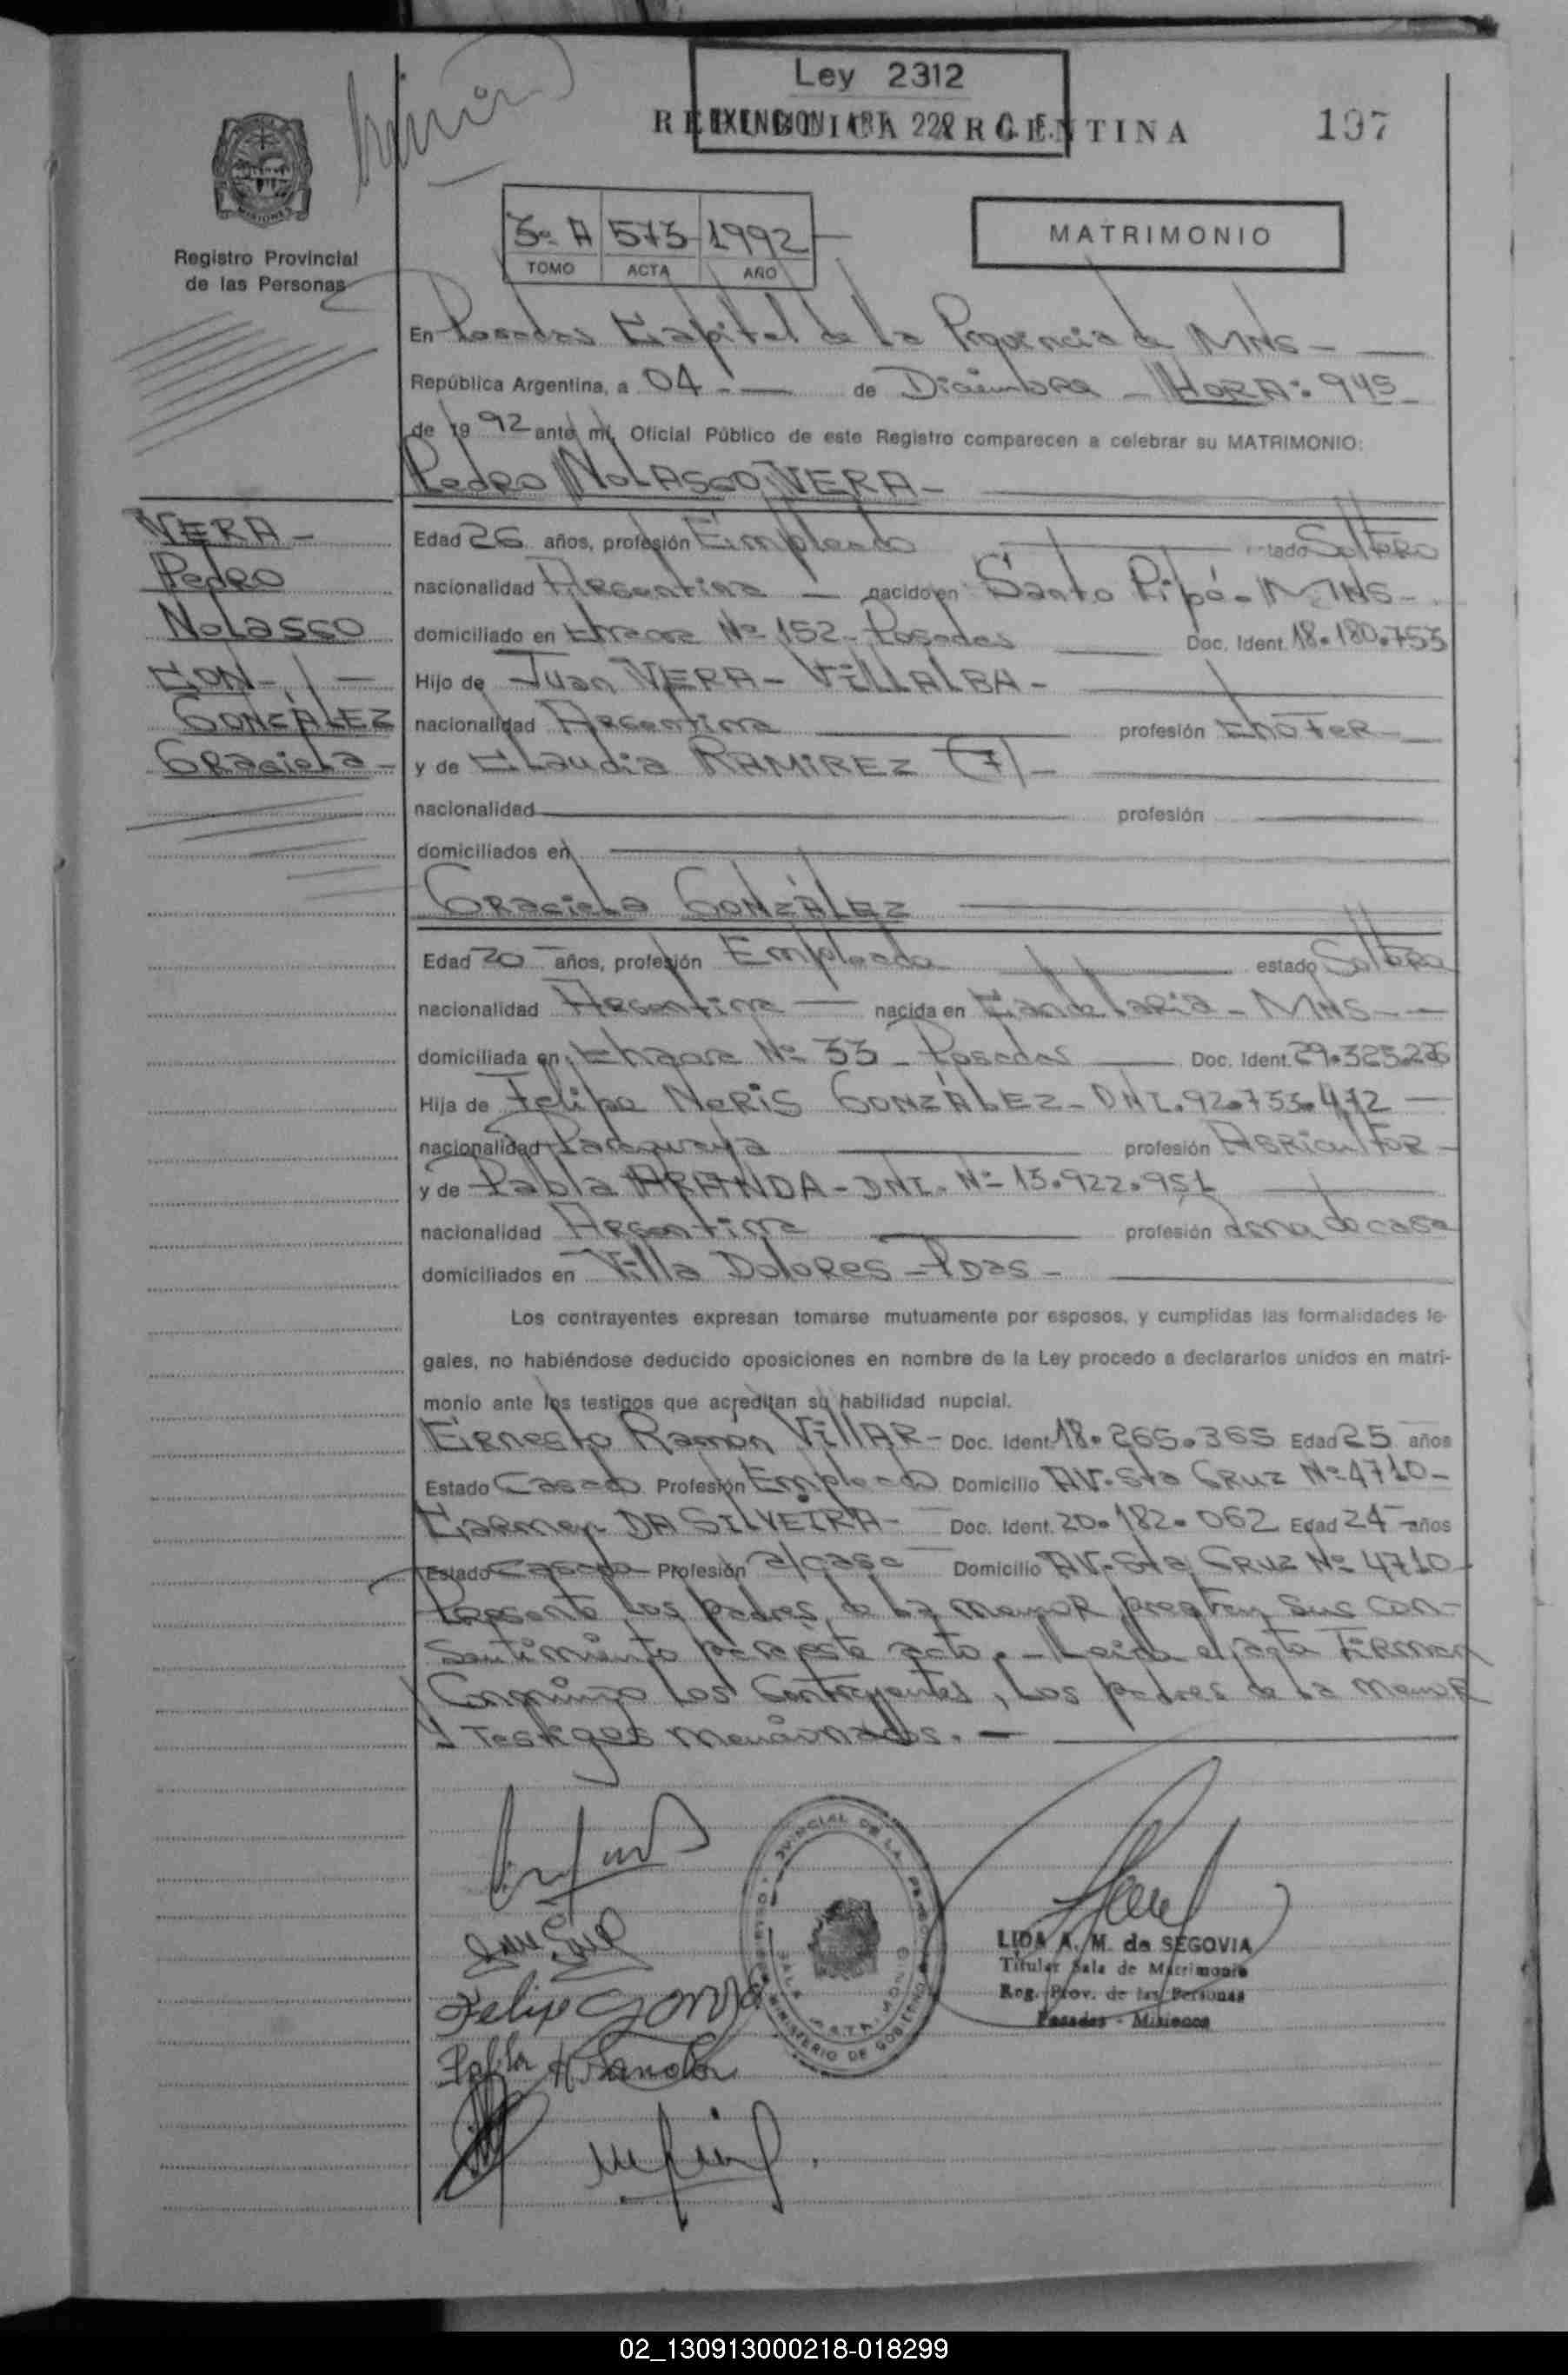 Ley 2312
REPUBLICA ARGENTINA
197
Registro Provincial
de las Personas
3º A 573 1992
TOMO ACTA AÑO
MATRIMONIO
En Posadas Capital de la Provincia de MNS -
República Argentina, a 04 - de Diciembre - HORA: 945
de 1992 ante mí, Oficial Público de este Registro comparecen a celebrar su MATRIMONIO:
Pedro NOLASCO VERA -
VERA -
Pedro
NOLASCO
CON -
GONZÁLEZ
Graciela -
Edad 26 años, profesión Empleado estado Soltero
nacionalidad Argentina - nacido en Santo Pipó - MNS -
domiciliado en Nº 152 - Posadas Doc. Ident. 18.180.753
Hijo de Juan VERA - VILLALBA -
nacionalidad Argentina profesión Chofer -
y de Claudia RAMIREZ (F) -
nacionalidad profesión
domiciliados en
Graciela GONZÁLEZ
Edad 20 años, profesión Empleada estado Soltera
nacionalidad Argentina - nacida en Candelaria - MNS - -
domiciliada en Nº 33 - Posadas Doc. Ident. 29.325.226
Hija de Felipe Neris GONZÁLEZ - DNI. 92.733.472 -
nacionalidad Paraguaya profesión Agricultor -
y de Pabla ARANDA - DNI. Nº 13.922.951
nacionalidad Argentina profesión ama de casa
domiciliados en Villa Dolores - Pdas -
Los contrayentes expresan tomarse mutuamente por esposos, y cumplidas las formalidades le-
gales, no habiéndose deducido oposiciones en nombre de la Ley procedo a declararlos unidos en matri-
monio ante los testigos que acreditan su habilidad nupcial.
Ernesto Ramón VILLAR - Doc. Ident. 18.265.365 Edad 25 años
Estado Casado Profesión Empleado Domicilio AV. Sta Cruz Nº 4710 -
Carmen DA SILVEIRA - Doc. Ident. 20.182.062 Edad 24 años
Estado Casada Profesión a/casa Domicilio AV. Sta Cruz Nº 4710
Presente los padres de la menor prestan sus con-
sentimiento para este acto. - Leida el acta Firman
Conmigo los Contrayentes, los padres de la menor
y Testigos mencionados. -
Felipe Gonza
Pabla Aranda
LIDA A. M. de SEGOVIA
Titular Sala de Matrimonio
Reg. Prov. de las Personas
Posadas - Misiones
MINISTERIO DE GOBIERNO
02_130913000218-018299